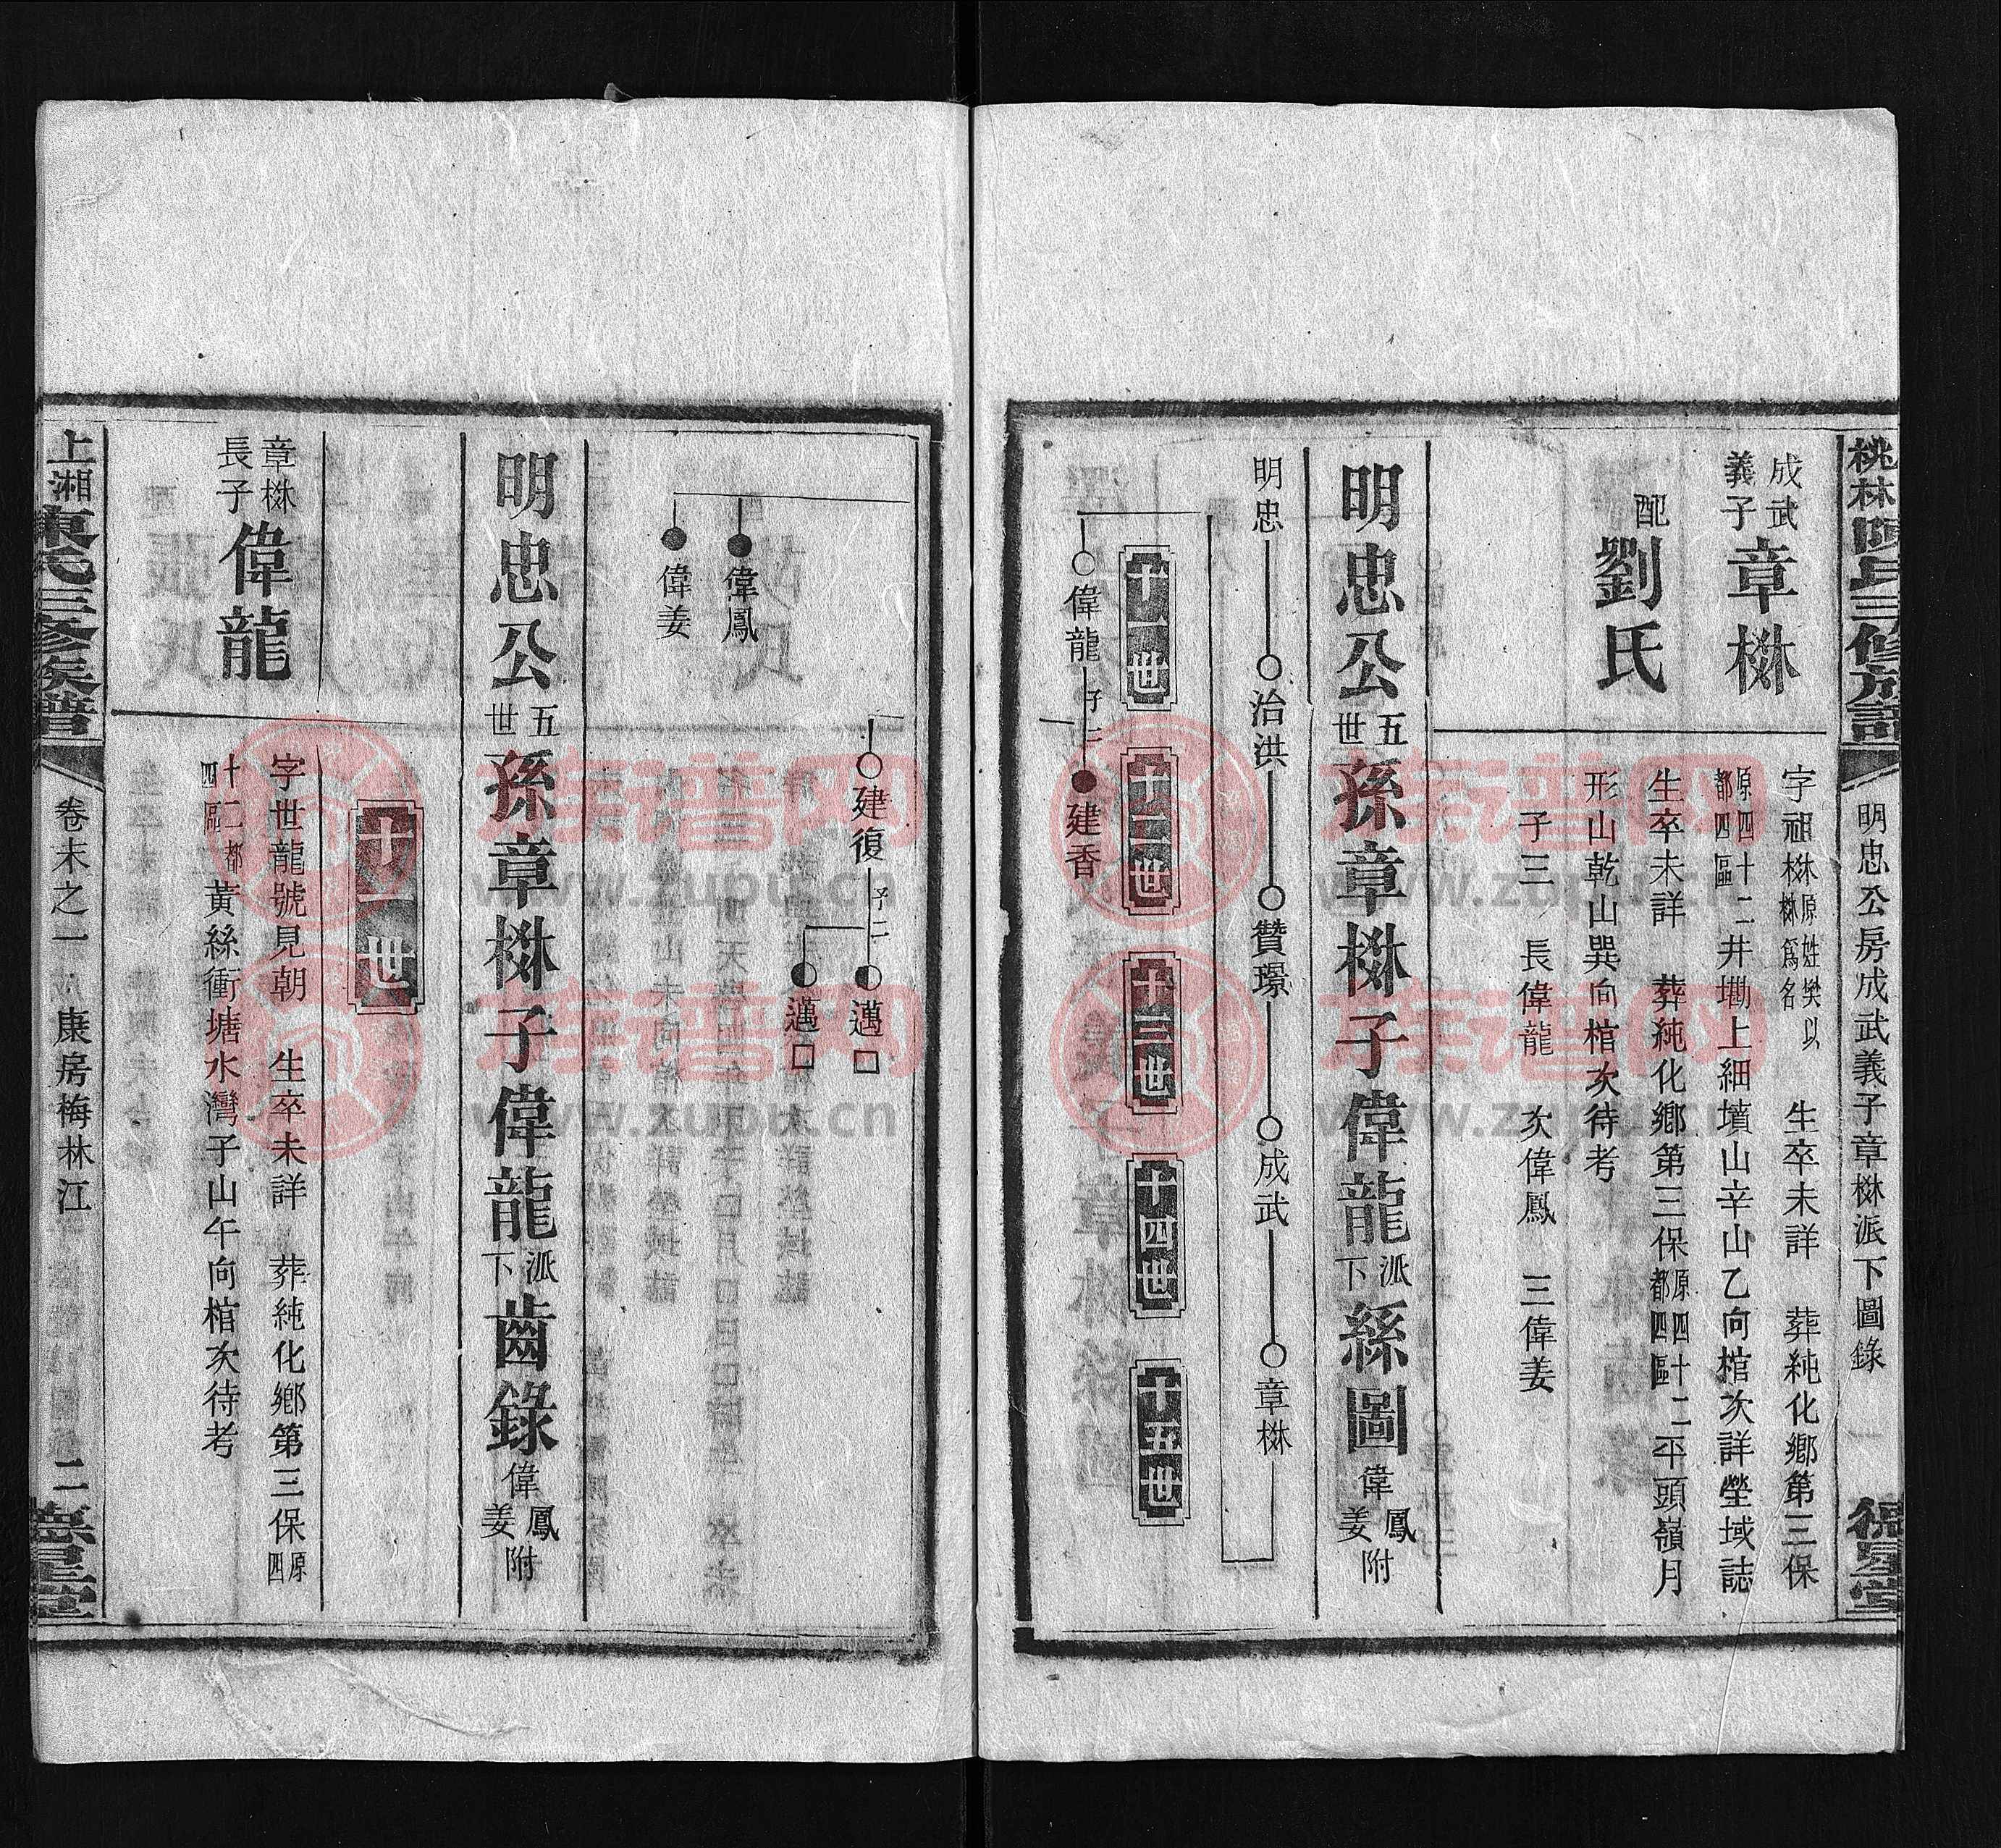 桃林陳氏三修族譜
明忠公房成武義子章楙派下圖錄
一
德星堂
成武
義子
章楙
字祖楙
楙原姓樊以
楙為名
生卒未詳 葬純化鄉第三保
原四十二
都四區
井墈上細墳山辛山乙向棺次詳塋域誌
配
劉氏
生卒未詳 葬純化鄉第三保
原四十二
都四區
平頭嶺月
形山乾山巽向棺次待考
子三 長偉龍 次偉鳳 三偉姜
明忠公
五
世
孫章楙子偉龍
派
下
絲圖
偉
鳳
姜
附
明忠
治洪
贊璟
成武
章楙
十一世
十二世
十三世
十四世
十五世
偉龍
子二
建香
建復
子二
邁□
邁□
偉鳳
偉姜
明忠公
五
世
孫章楙子偉龍
派
下
齒錄
偉
鳳
姜
附
十一世
章楙
長子
偉龍
字世龍號見朝 生卒未詳 葬純化鄉第三保
原
四
十二都
四區
黃絲衝塘水灣子山午向棺次待考
上湘陳氏三修族譜
卷末之一
康房梅林江
二
德星堂
www.zupu.cn
族谱网
www.zupu.cn
族谱网
www.zupu.cn
族谱网
www.zupu.cn
族谱网